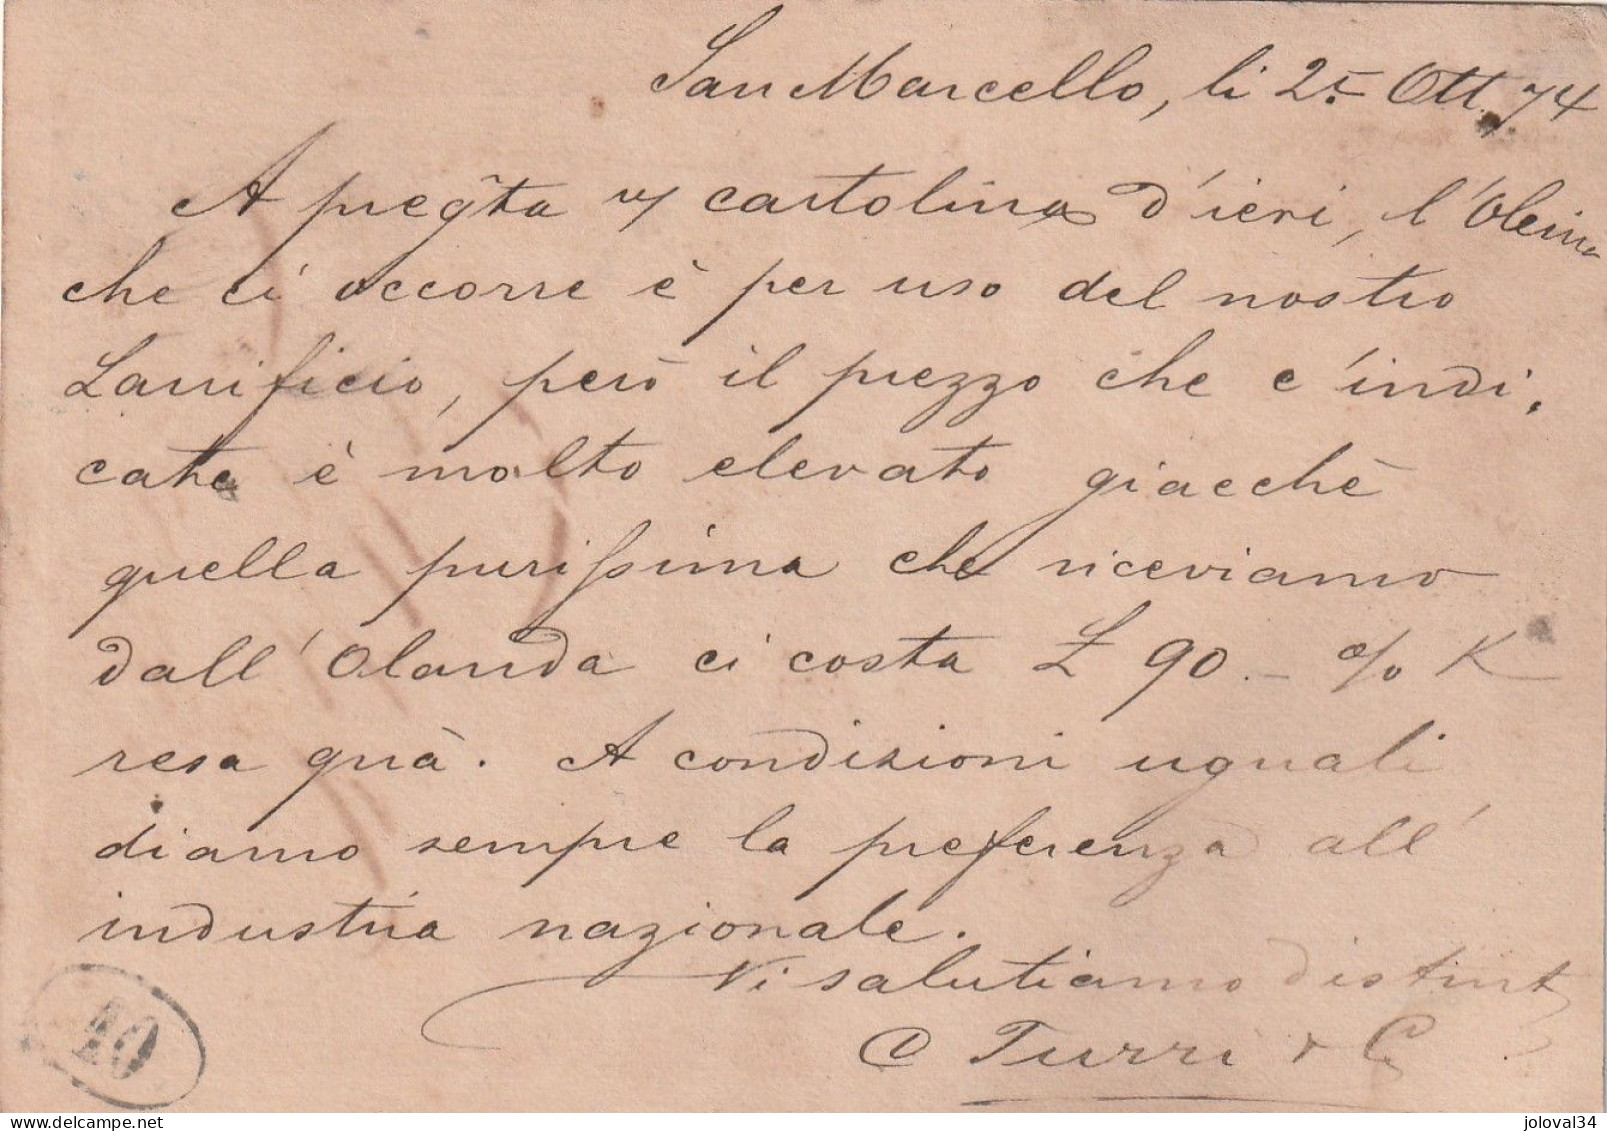 San Marcello, li 2. Ott. 74
A pregta vs cartolina d'ieri, l'Oleina
che ci occorre è per uso del nostro
Lanificio, però il prezzo che c'indi,
cate è molto elevato giacchè
quella purissima che riceviamo
dall'Olanda ci costa £ 90. — % K
resa quà. A condizioni uguali
diamo sempre la preferenza all'
industria nazionale.
Vi salutiamo distint
C Turri & C
10
joloval34